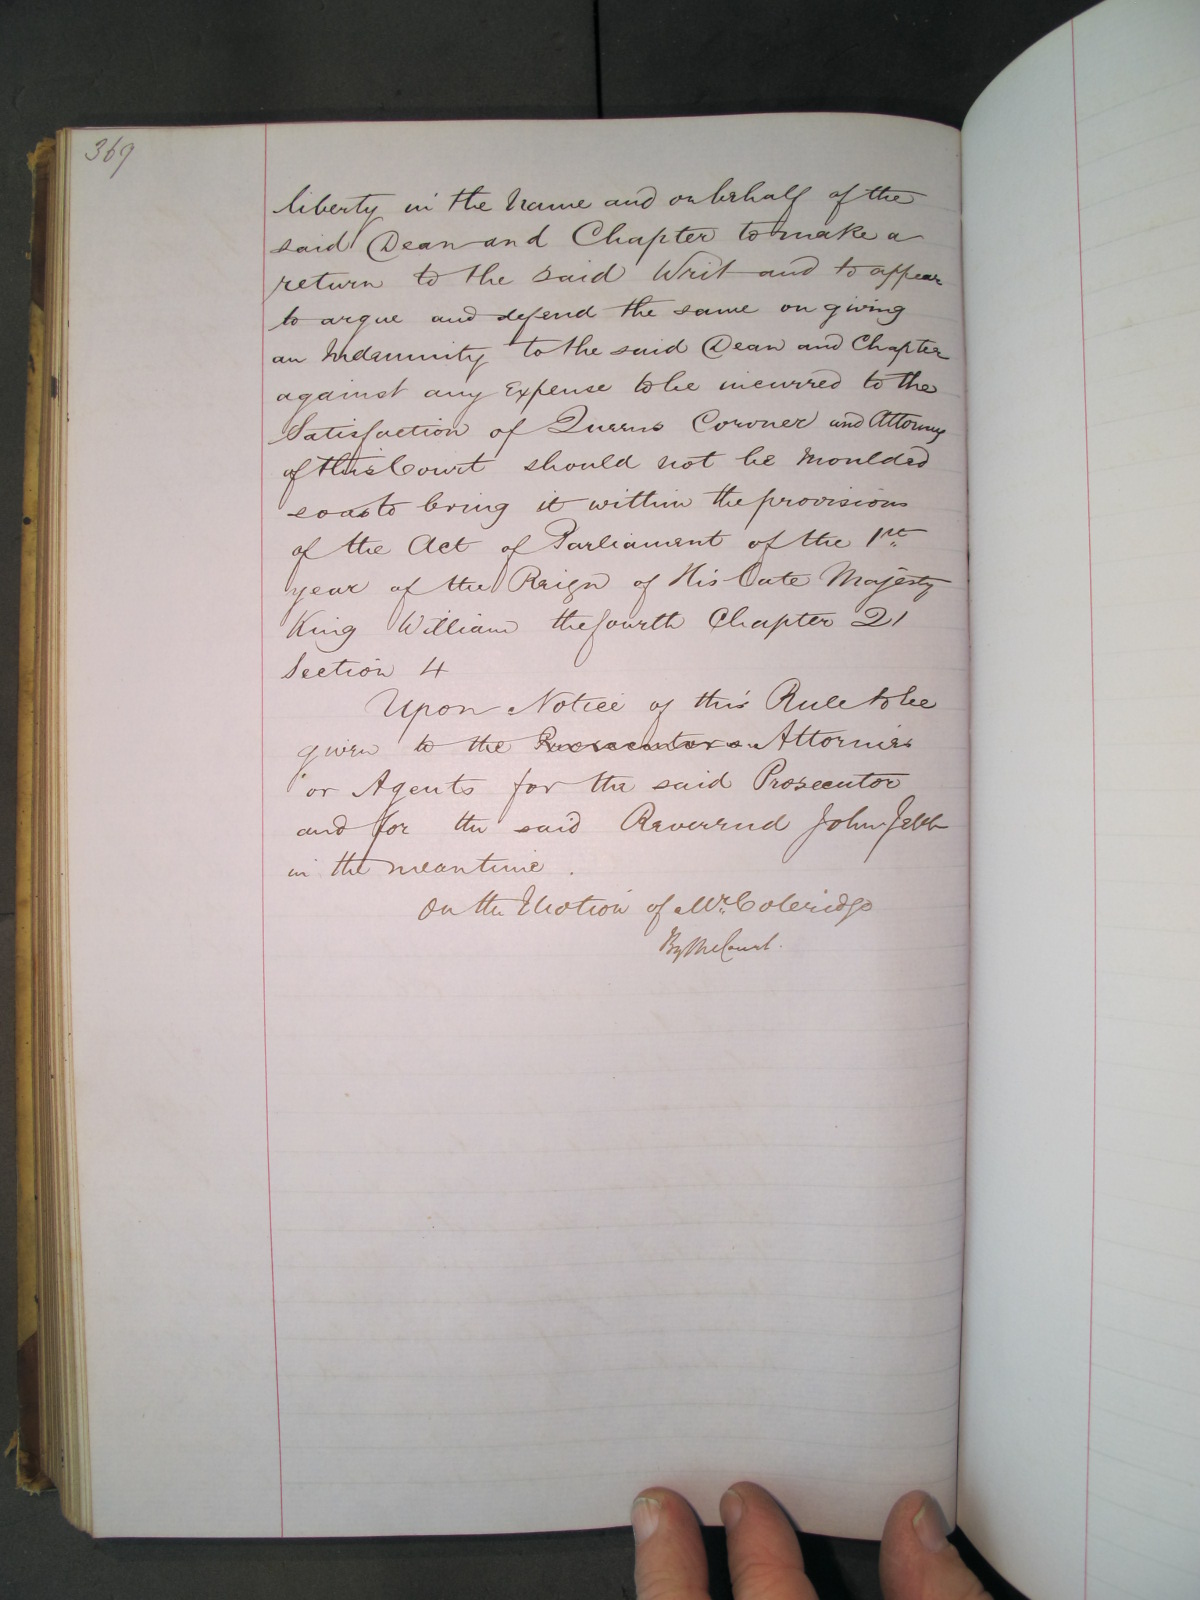 369
liberty in the Name and on behalf of the
said Dean and Chapter to make a
return to the said Writ and to appear
to argue and defend the same on giving
an Indemnity to the said Dean and Chapter
against any Expense to be incurred to the
Satisfaction of Queens Coroner and Attorney
of this Court should not be moulded
so as to bring it within the provisions
of the Act of Parliament of the 1st
year of the Reign of His Late Majesty
King William the fourth Chapter 21
Section 4
Upon Notice of this Rule to be
given to the Attornies
or Agents for the said Prosecutor
and for the said Reverend John Jebb
in the meantime.
On the Motion of Mr. Coleridge
By the Court.